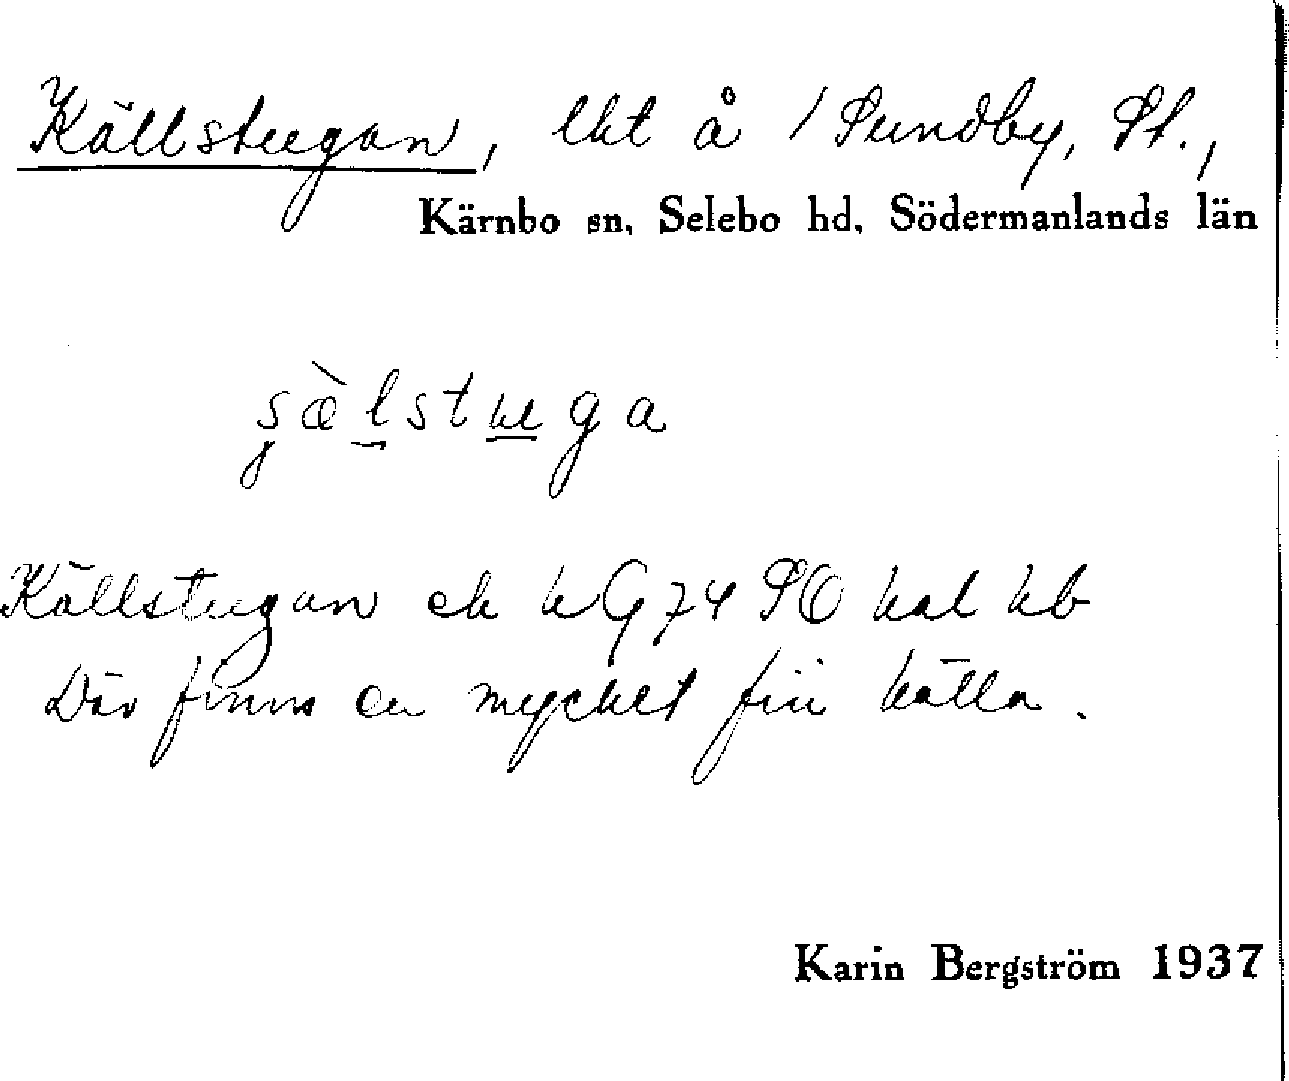 Källstugan, lht å 1 Sundby, St.,
Kärnbo sn, Selebo hd, Södermanlands län
sælstuga
Källstugan ek kG74 SO kal kb
Där finns en mycket fin källa.
Karin Bergström 1937